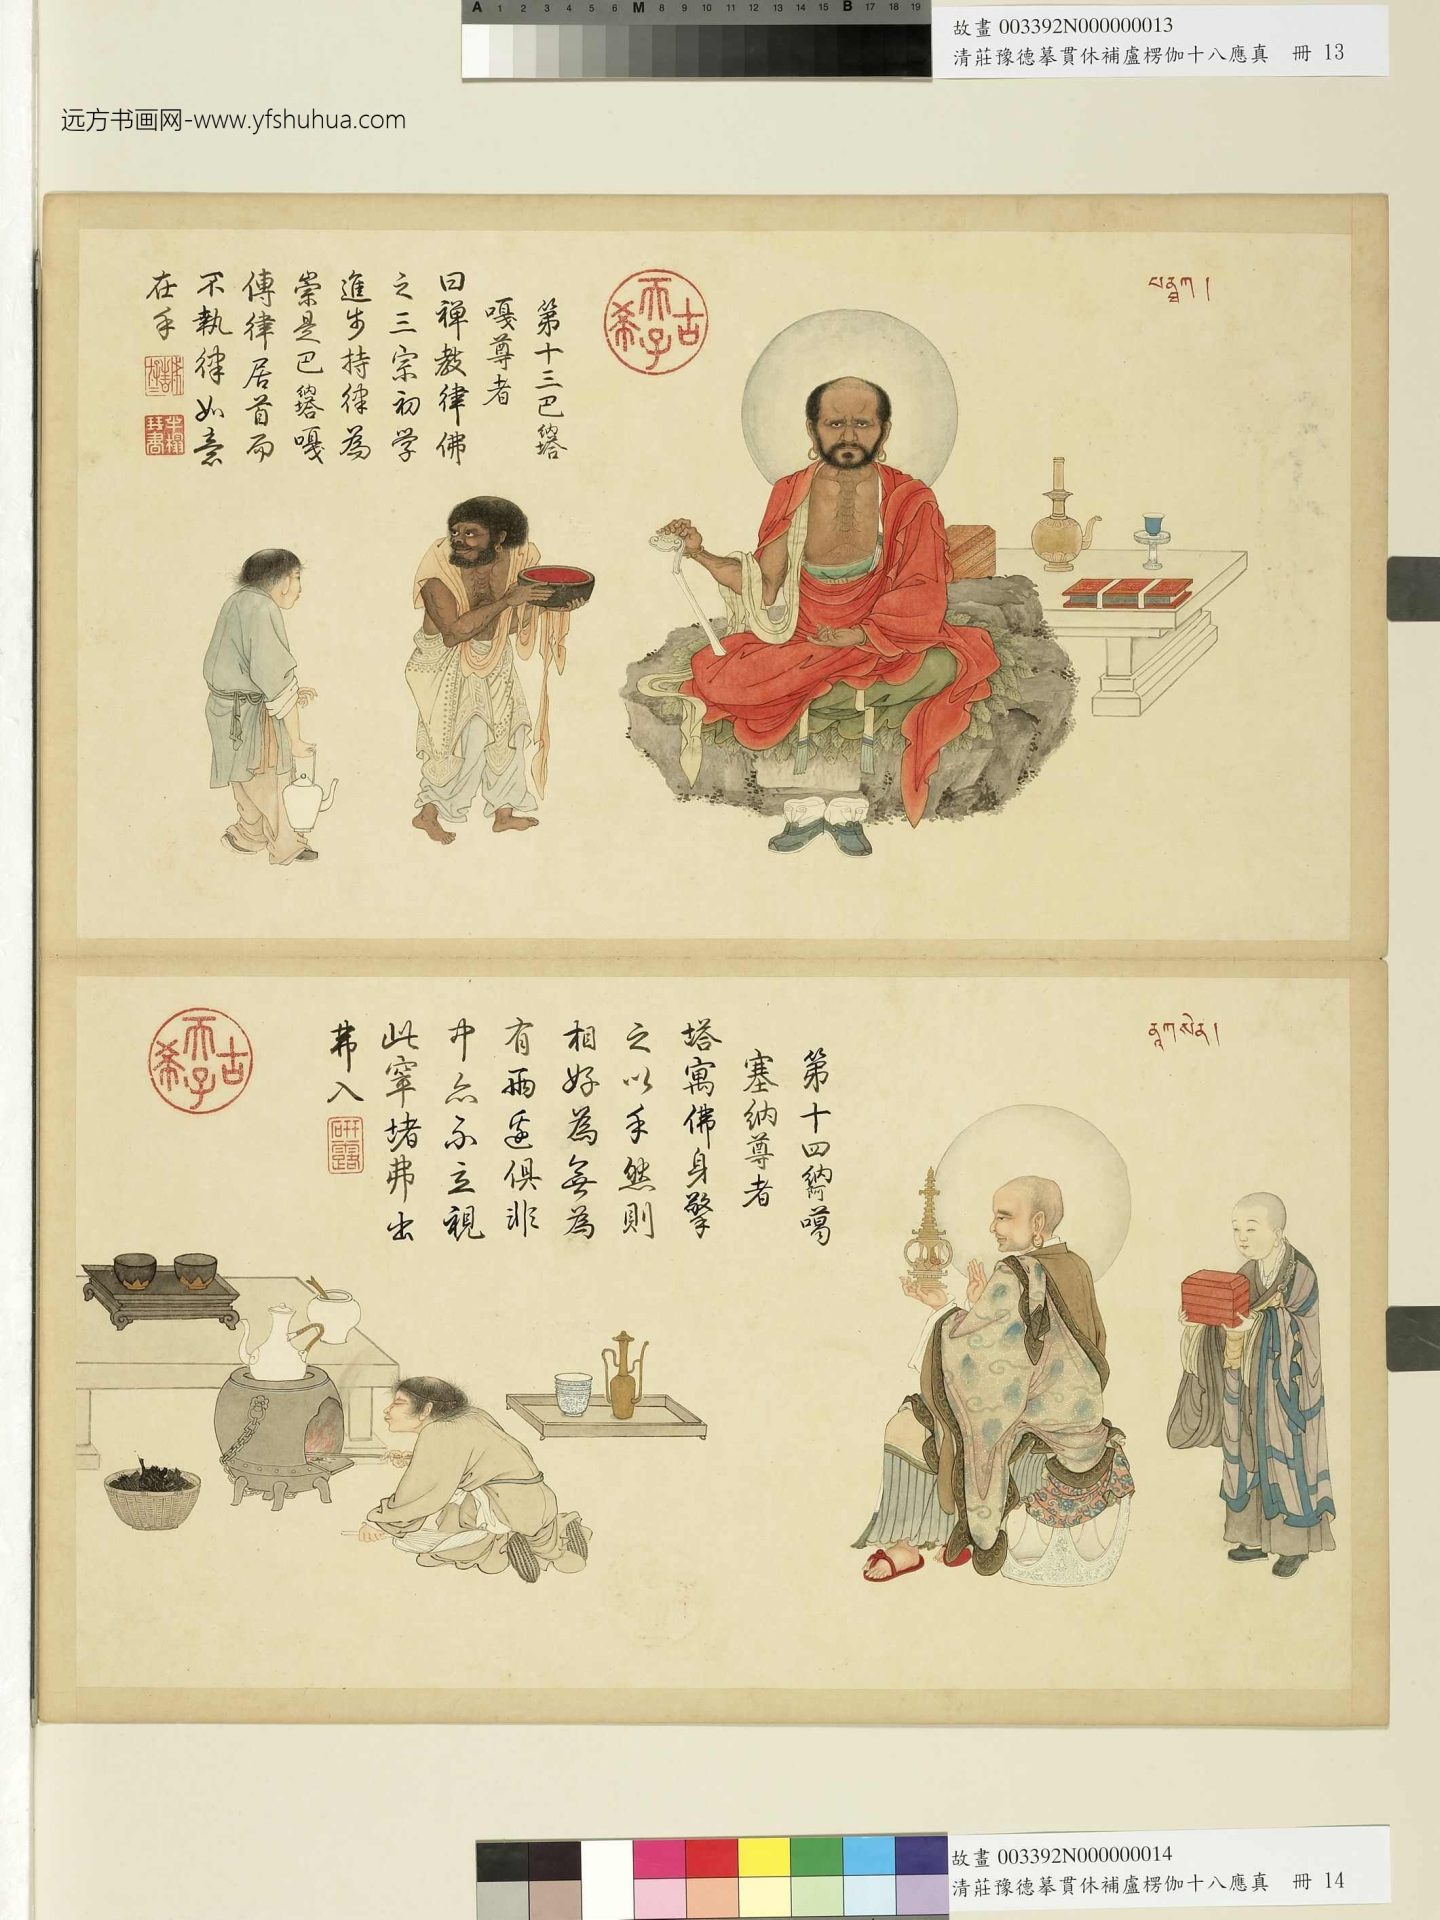 A 1 2 3 4 5 6 M 8 9 10 11 12 13 14 15 B 17 18 19
故畫 003392N000000013
清莊豫德摹貫休補盧楞伽十八應真 冊 13
远方书画网-www.yfshuhua.com
第十三巴納塔
嘎尊者
曰禪教律佛
之三宗初学
進步持律為
崇是巴納塔嘎
傳律居首而
不執律如意
在手
古
天子
希
第十四納阿噶
塞納尊者
塔寓佛身擎
之以手然則
相好為無為
有兩邊俱非
中亦不立視
此窣堵弗出
弗入
古
天子
希
故畫 003392N000000014
清莊豫德摹貫休補盧楞伽十八應真 冊 14